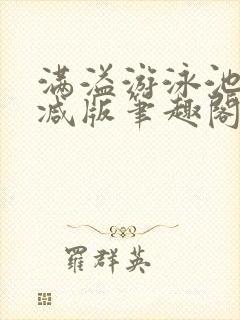 满溢游泳池
减版筆趣閣
羅群英